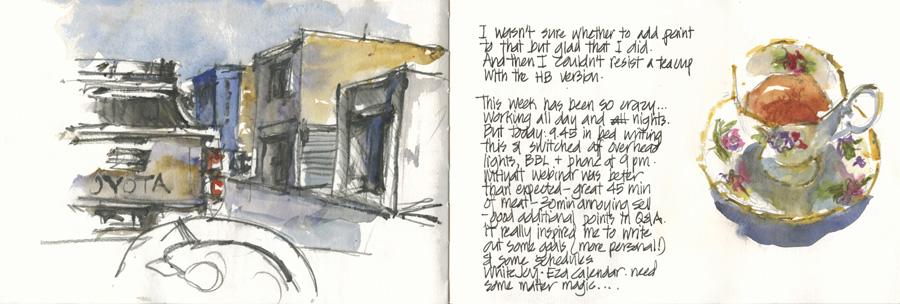 OYOTA
I wasn't sure whether to add paint
to that but glad that I did.
And then I couldn't resist a teacup
with the HB version.
This week has been so crazy...
Working all day and all nights.
But today: 9.45 in bed writing
this & switched off overhead
lights, BBL + phone at 9pm.
webinar was better
than expected - great 45 min
of meat - 30min annoying sell
- good additional points in Q&A.
It really inspired me to write
out some goals (more personal!)
& some schedules
Calendar. need
some matter magic....